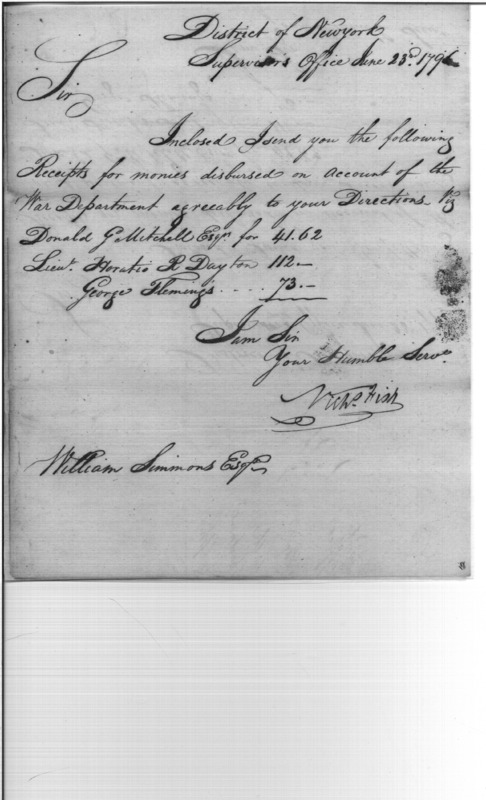 District of Newyork
Supervisors Office June 23d. 1796
Sir
Inclosed I send you the following
Receipts for monies disbursed on account of the
War Department agreeably to your Directions Viz
Donald G Mitchell Esqr. for 41.62
Lieut. Horatio R Dayton 112.—
George Flemings .... 73.—
I am Sir
Your Humble Servt.
Nichs. Fish
William Simmons Esqr.